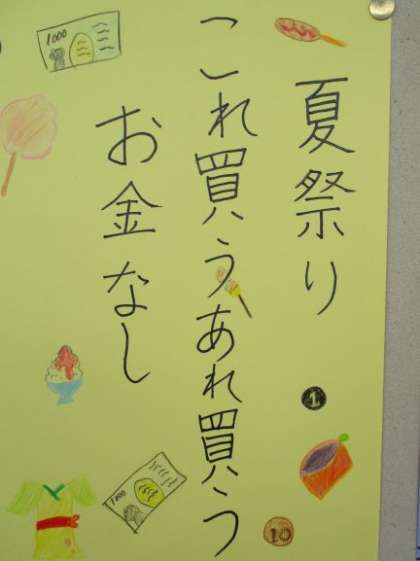 夏祭り
これ買うあれ買う
お金なし
1000
1000
1
10